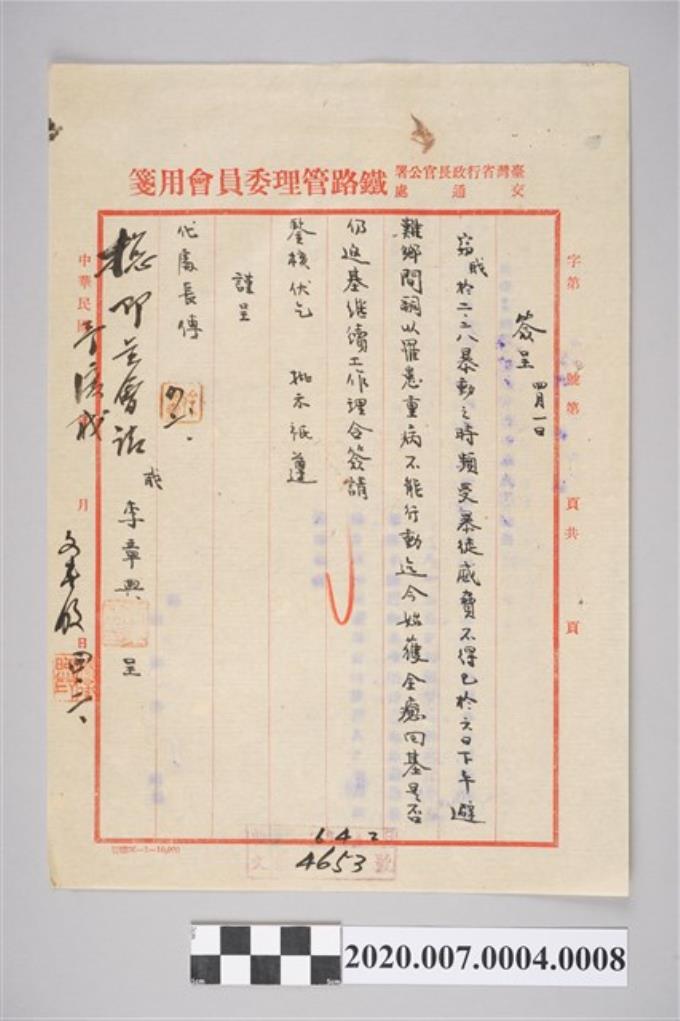 臺灣省行政長官公署
交通處
鐵路管理委員會用箋
字第 號第 頁共 頁
簽呈 四月一日
竊職於二.二八暴動之時頻受暴徒威脅不得已於六日下午避
難鄉間詞以罹患重病不能行動迄今始獲全癒回基是否
仍返基繼續工作理合簽請
鑒核伏乞 批示祇遵
謹呈
代處長傅
職 李章興 呈
中華民國 月 日
四.二、
6 4 2
4653
2020.007.0004.0008